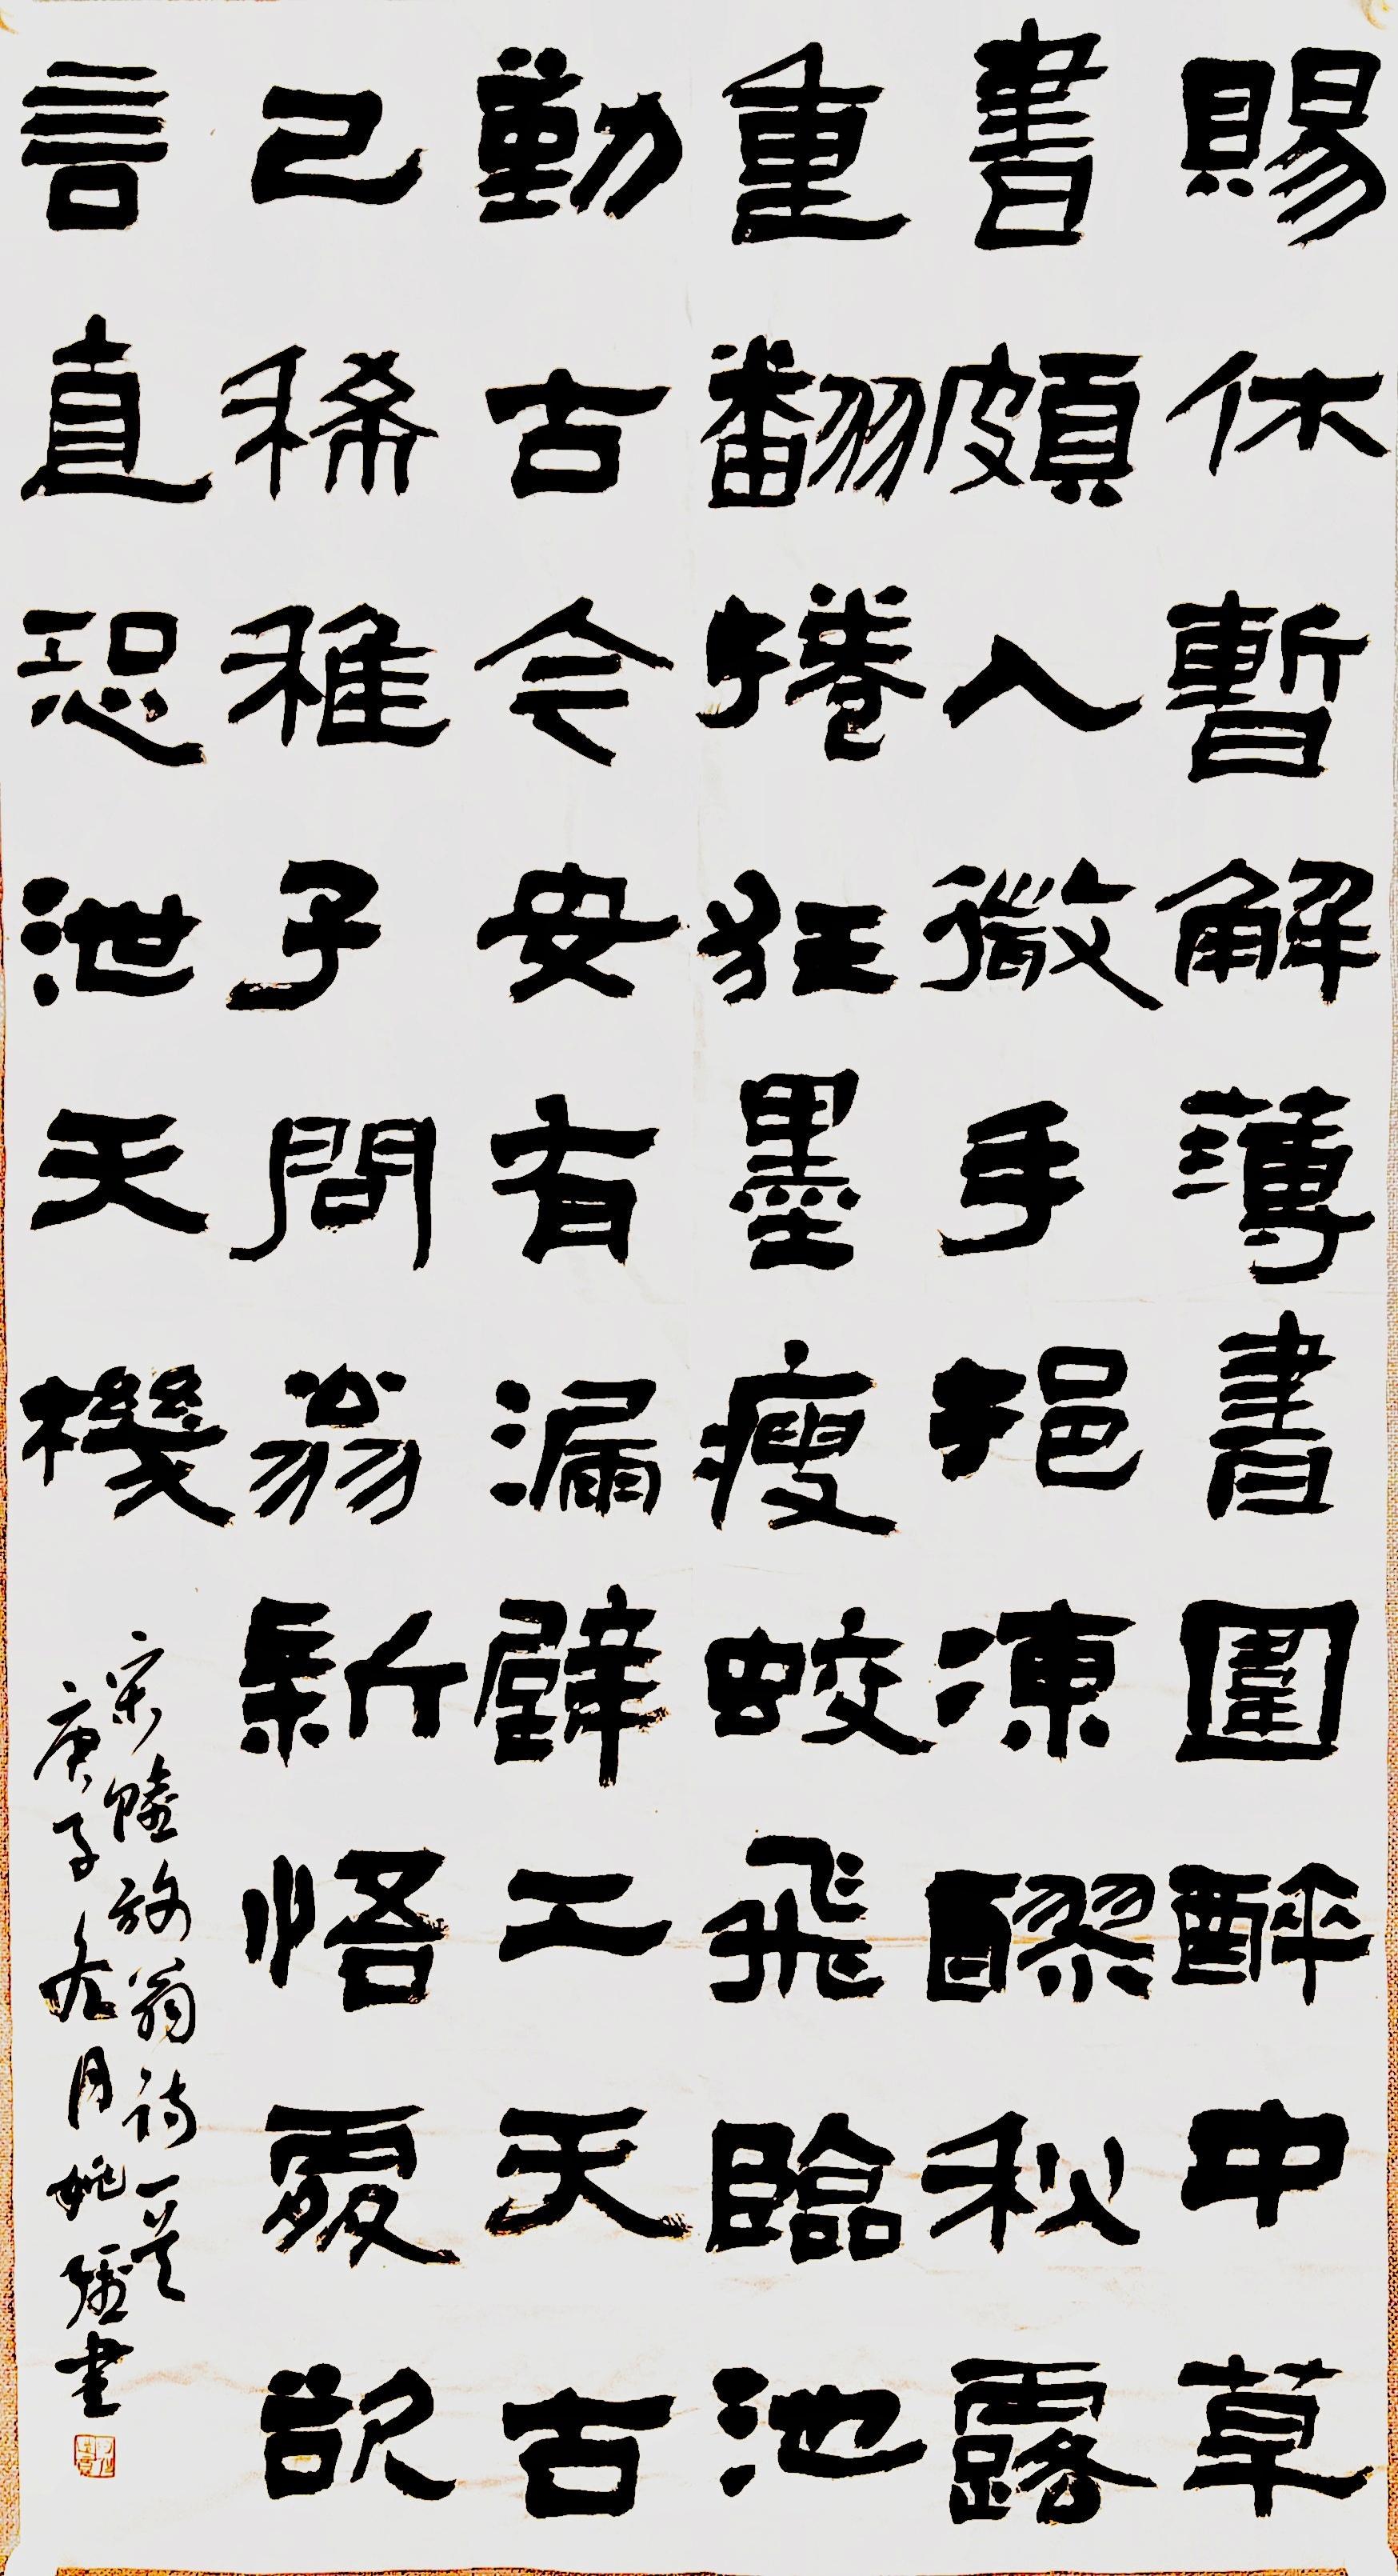 賜休暫解薄書圍醉中草
書頗入微手挹凍醪秋露
重翻捲狂墨瘦蛟飛臨池
勤古今安有漏壁工天古
己稀稚子問翁新悟處欲
言直恐泄天機
宋陸放翁詩一首
庚子冬月姚強書